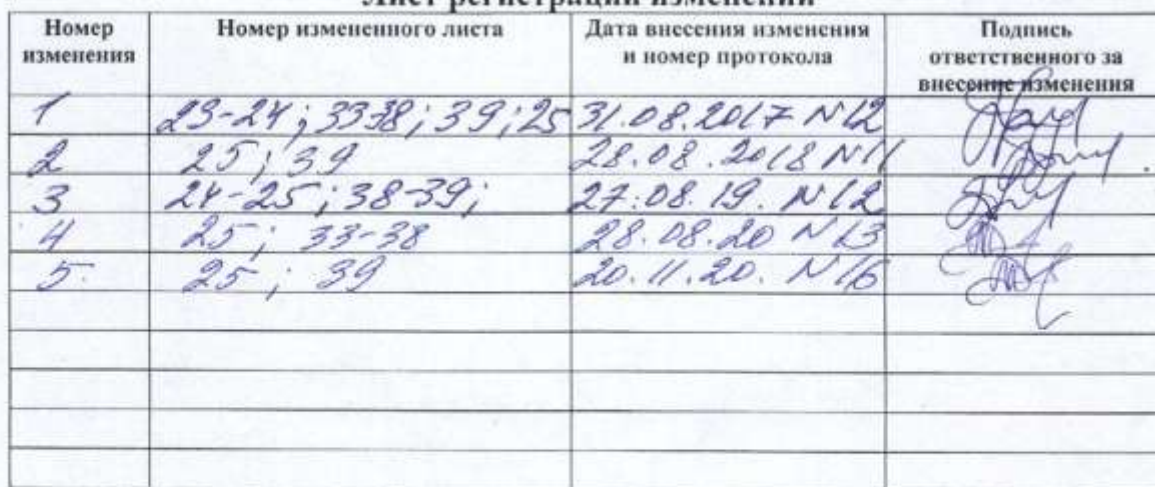 Лист регистрации изменений
Номер изменения Номер измененного листа Дата внесения изменения и номер протокола Подпись ответственного за внесение изменения
1 23-24; 33-38; 39; 25 31.08.2017 N12
2 25; 39 28.08.2018 N11
3 24-25; 38-39; 27.08.19. N12
4 25; 33-38 28.08.20 N13
5. 25; 39 20.11.20. N16